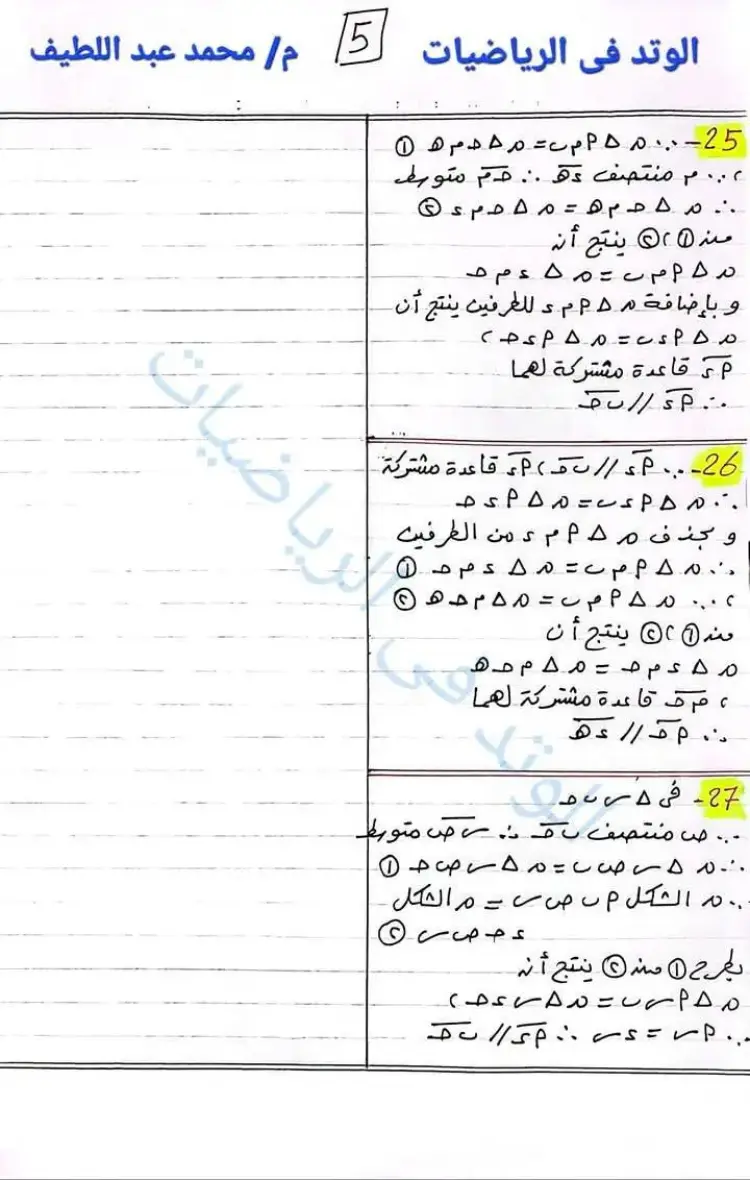 الوتد فى الرياضيات
5
م/ محمد عبد اللطيف
25- ∵ م △ أ م ب = م △ حـ م هـ ①
، ∵ م منتصف ء هـ ∴ حـ م متوسط
∴ م △ حـ م هـ = م △ حـ م ء ②
من ① ، ② ينتج أن
م △ أ م ب = م △ ء م حـ
و بإضافة م △ أ م ء للطرفين ينتج أن
م △ أ ء ب = م △ أ ء حـ ،
أ ء قاعدة مشتركة لهما
∴ أ ء // ب حـ
26- ∵ أ ء // ب حـ ، أ ء قاعدة مشتركة
∴ م △ أ ء ب = م △ أ ء حـ
و بحذف م △ أ م ء من الطرفين
∴ م △ أ م ب = م △ ء م حـ ①
، ∵ م △ أ م ب = م △ م حـ هـ ②
من ① ، ② ينتج أن
م △ ء م حـ = م △ م حـ هـ
، م حـ قاعدة مشتركة لهما
∴ م حـ // ء هـ
27- فى △ س ب حـ
∵ ص منتصف ب حـ ∴ س ص متوسط
∴ م △ س ص ب = م △ س ص حـ ①
∵ م الشكل أ ب ص س = م الشكل
ء حـ ص س ②
بطرح ① من ② ينتج أن
م △ أ س ب = م △ س ء حـ ،
∵ أ س = ء س ∴ أ ء // ب حـ
الوتد فى الرياضيات